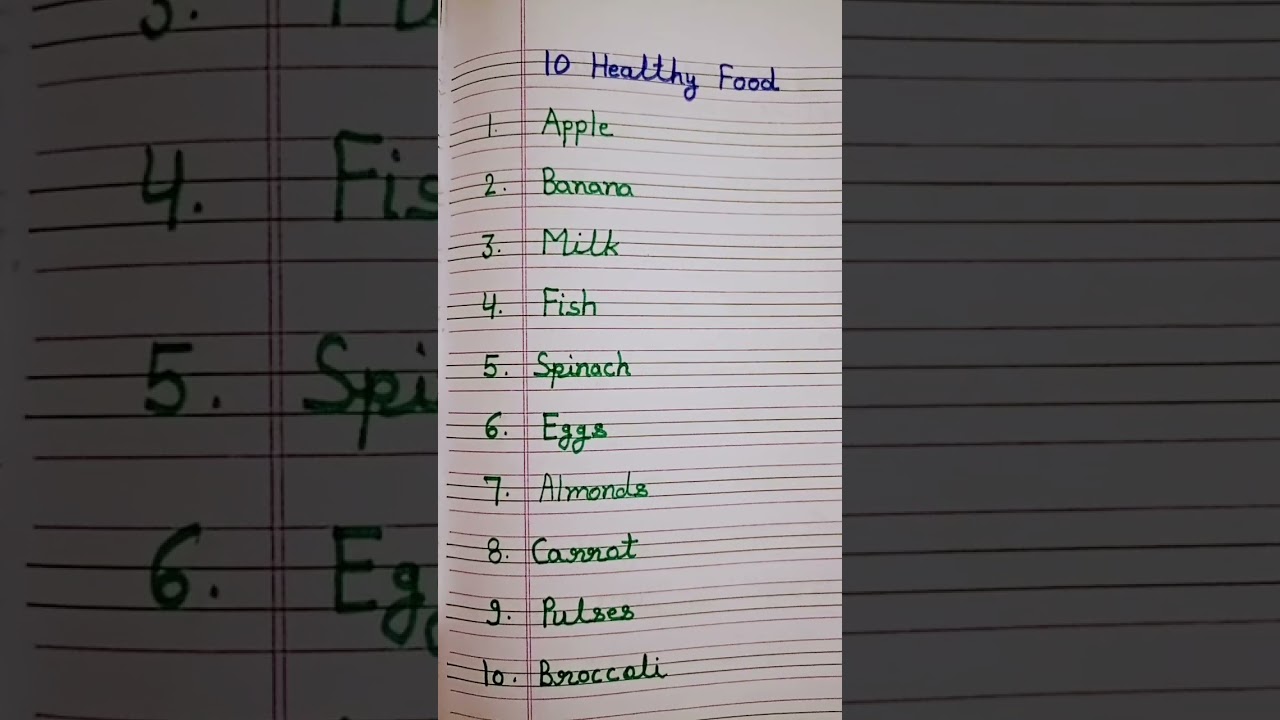 10 Healthy Food
1. Apple
2. Banana
3. Milk
4. Fish
5. Spinach
6. Eggs
7. Almonds
8. Carrot
9. Pulses
10. Broccoli